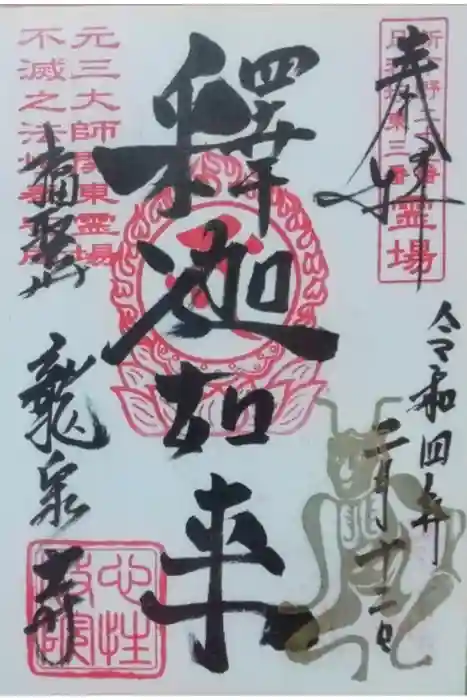 奉拝
霊場
令和四年
二月十一日
釋迦如来
元三大師関東霊場
不滅之法
福聚山
龍泉寺
心性